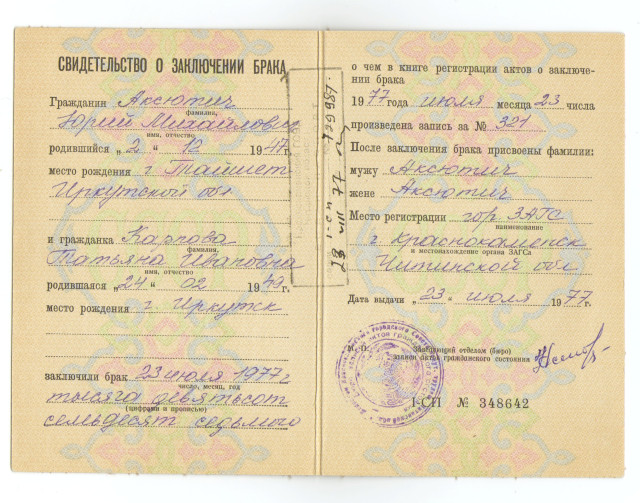 СВИДЕТЕЛЬСТВО О ЗАКЛЮЧЕНИИ БРАКА
Гражданин Аксютич
фамилия,
Юрий Михайлович
имя, отчество
родившийся „2“ 12 1947г.
место рождения г. Тайшет
Иркутской обл
и гражданка Карпова
фамилия,
Татьяна Ивановна
имя, отчество
родившаяся „24“ 02 1949г.
место рождения г. Иркутск
заключили брак 23 июля 1977г
число, месяц, год
тысяча девятьсот
(цифрами и прописью)
семьдесят седьмого
о чем в книге регистрации актов о заключе-
нии брака
1977 года июля месяца 23 числа
произведена запись за № 321
После заключения брака присвоены фамилии:
мужу Аксютич
жене Аксютич
Место регистрации гор. ЗАГС
наименование
г Краснокаменск
и местонахождение органа ЗАГСа
Читинской обл
Дата выдачи „23“ июля 1977г.
М. П.
Заведующий отделом (бюро)
записи актов гражданского состояния
I-СП № 348642